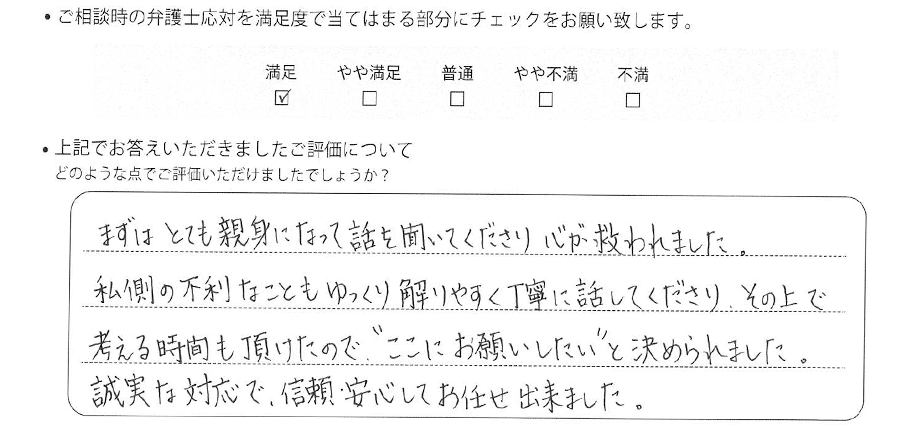 ・ご相談時の弁護士応対を満足度で当てはまる部分にチェックをお願い致します。
満足 やや満足 普通 やや不満 不満
☑ □ □ □ □
・上記でお答えいただきましたご評価について
どのような点でご評価いただけましたでしょうか？
まずはとても親身になって話を聞いてくださり心が救われました。
私側の不利なこともゆっくり解りやすく丁寧に話してくださり、その上で
考える時間も頂けたので、“ここにお願いしたい”と決められました。
誠実な対応で、信頼・安心してお任せ出来ました。